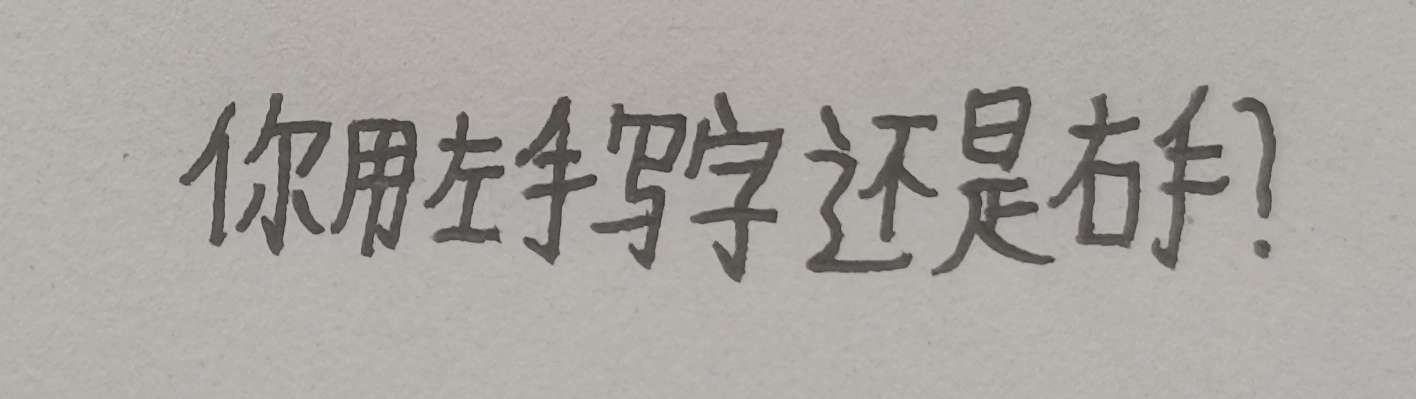 你用左手写字还是右手?